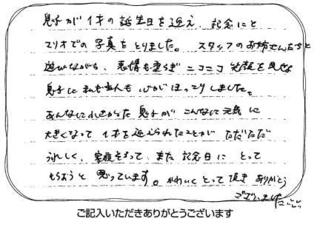 息子が1才の誕生日を迎え、記念にと
スタジオでの写真をとりました。スタッフのお姉さんたちと
遊びながら、表情も豊かで ニコニコ 笑顔を見せる
息子に私も主人も心がほっこりしました。
あんなに小さかった息子が こんなに元気に
大きくなって 1才を迎えられたことが ただただ
うれしく、家族そろって、また記念日に とって
もらおうと思っています。かわいくとって頂き ありがとう
ございました
ご記入いただきありがとうございます